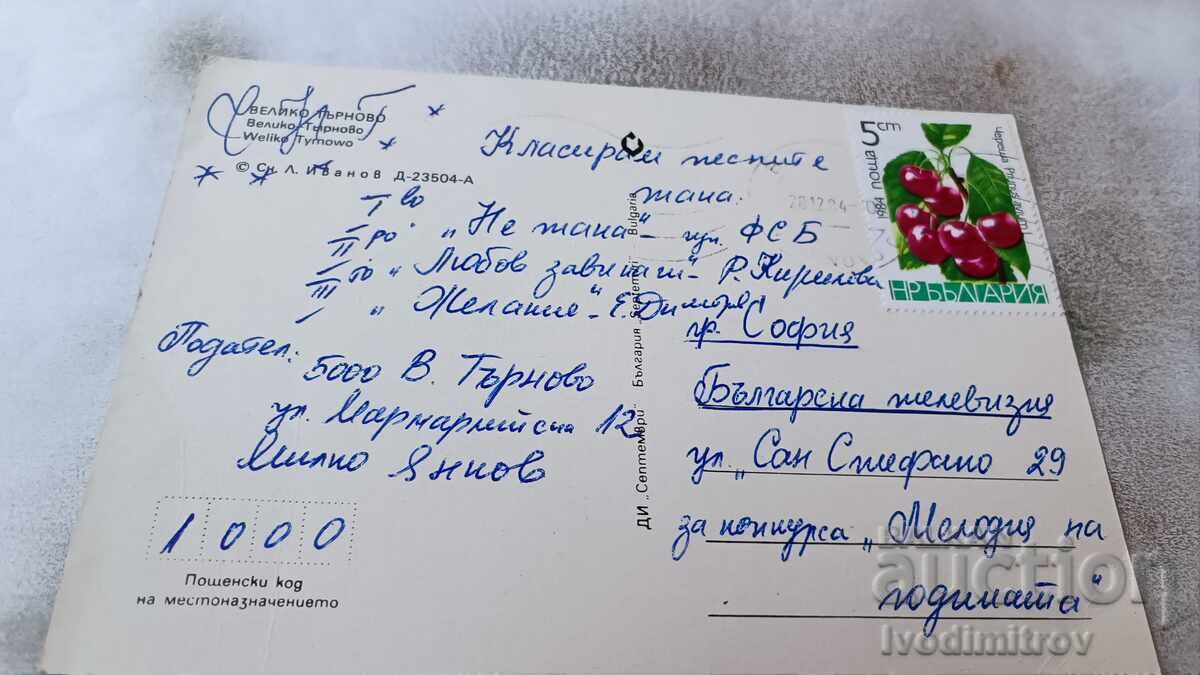 ВЕЛИКО ТЪРНОВО
Велико Търново
Weliko Tyrnowo
© Сн. Л. Иванов Д-23504-А
Класирам песните
така:
I во „Не така“ - гр. ФСБ
II ро „Любов завинаги“ - Р. Кирилова
III то „Желание“ - Е. Димитров
Подател:
5000 В. Търново
ул. Мармарлийска 12
Милко Янков
1000
Пощенски код
на местоназначението
ДИ „Септември“ България „Septemvri“ Bulgaria
28.12.84
5 ст
1984 поща
Череша
НР БЪЛГАРИЯ
гр. София
Българска телевизия
ул. „Сан Стефано 29
за конкурса „Мелодия на
годината“
auction
Ivodimitrov